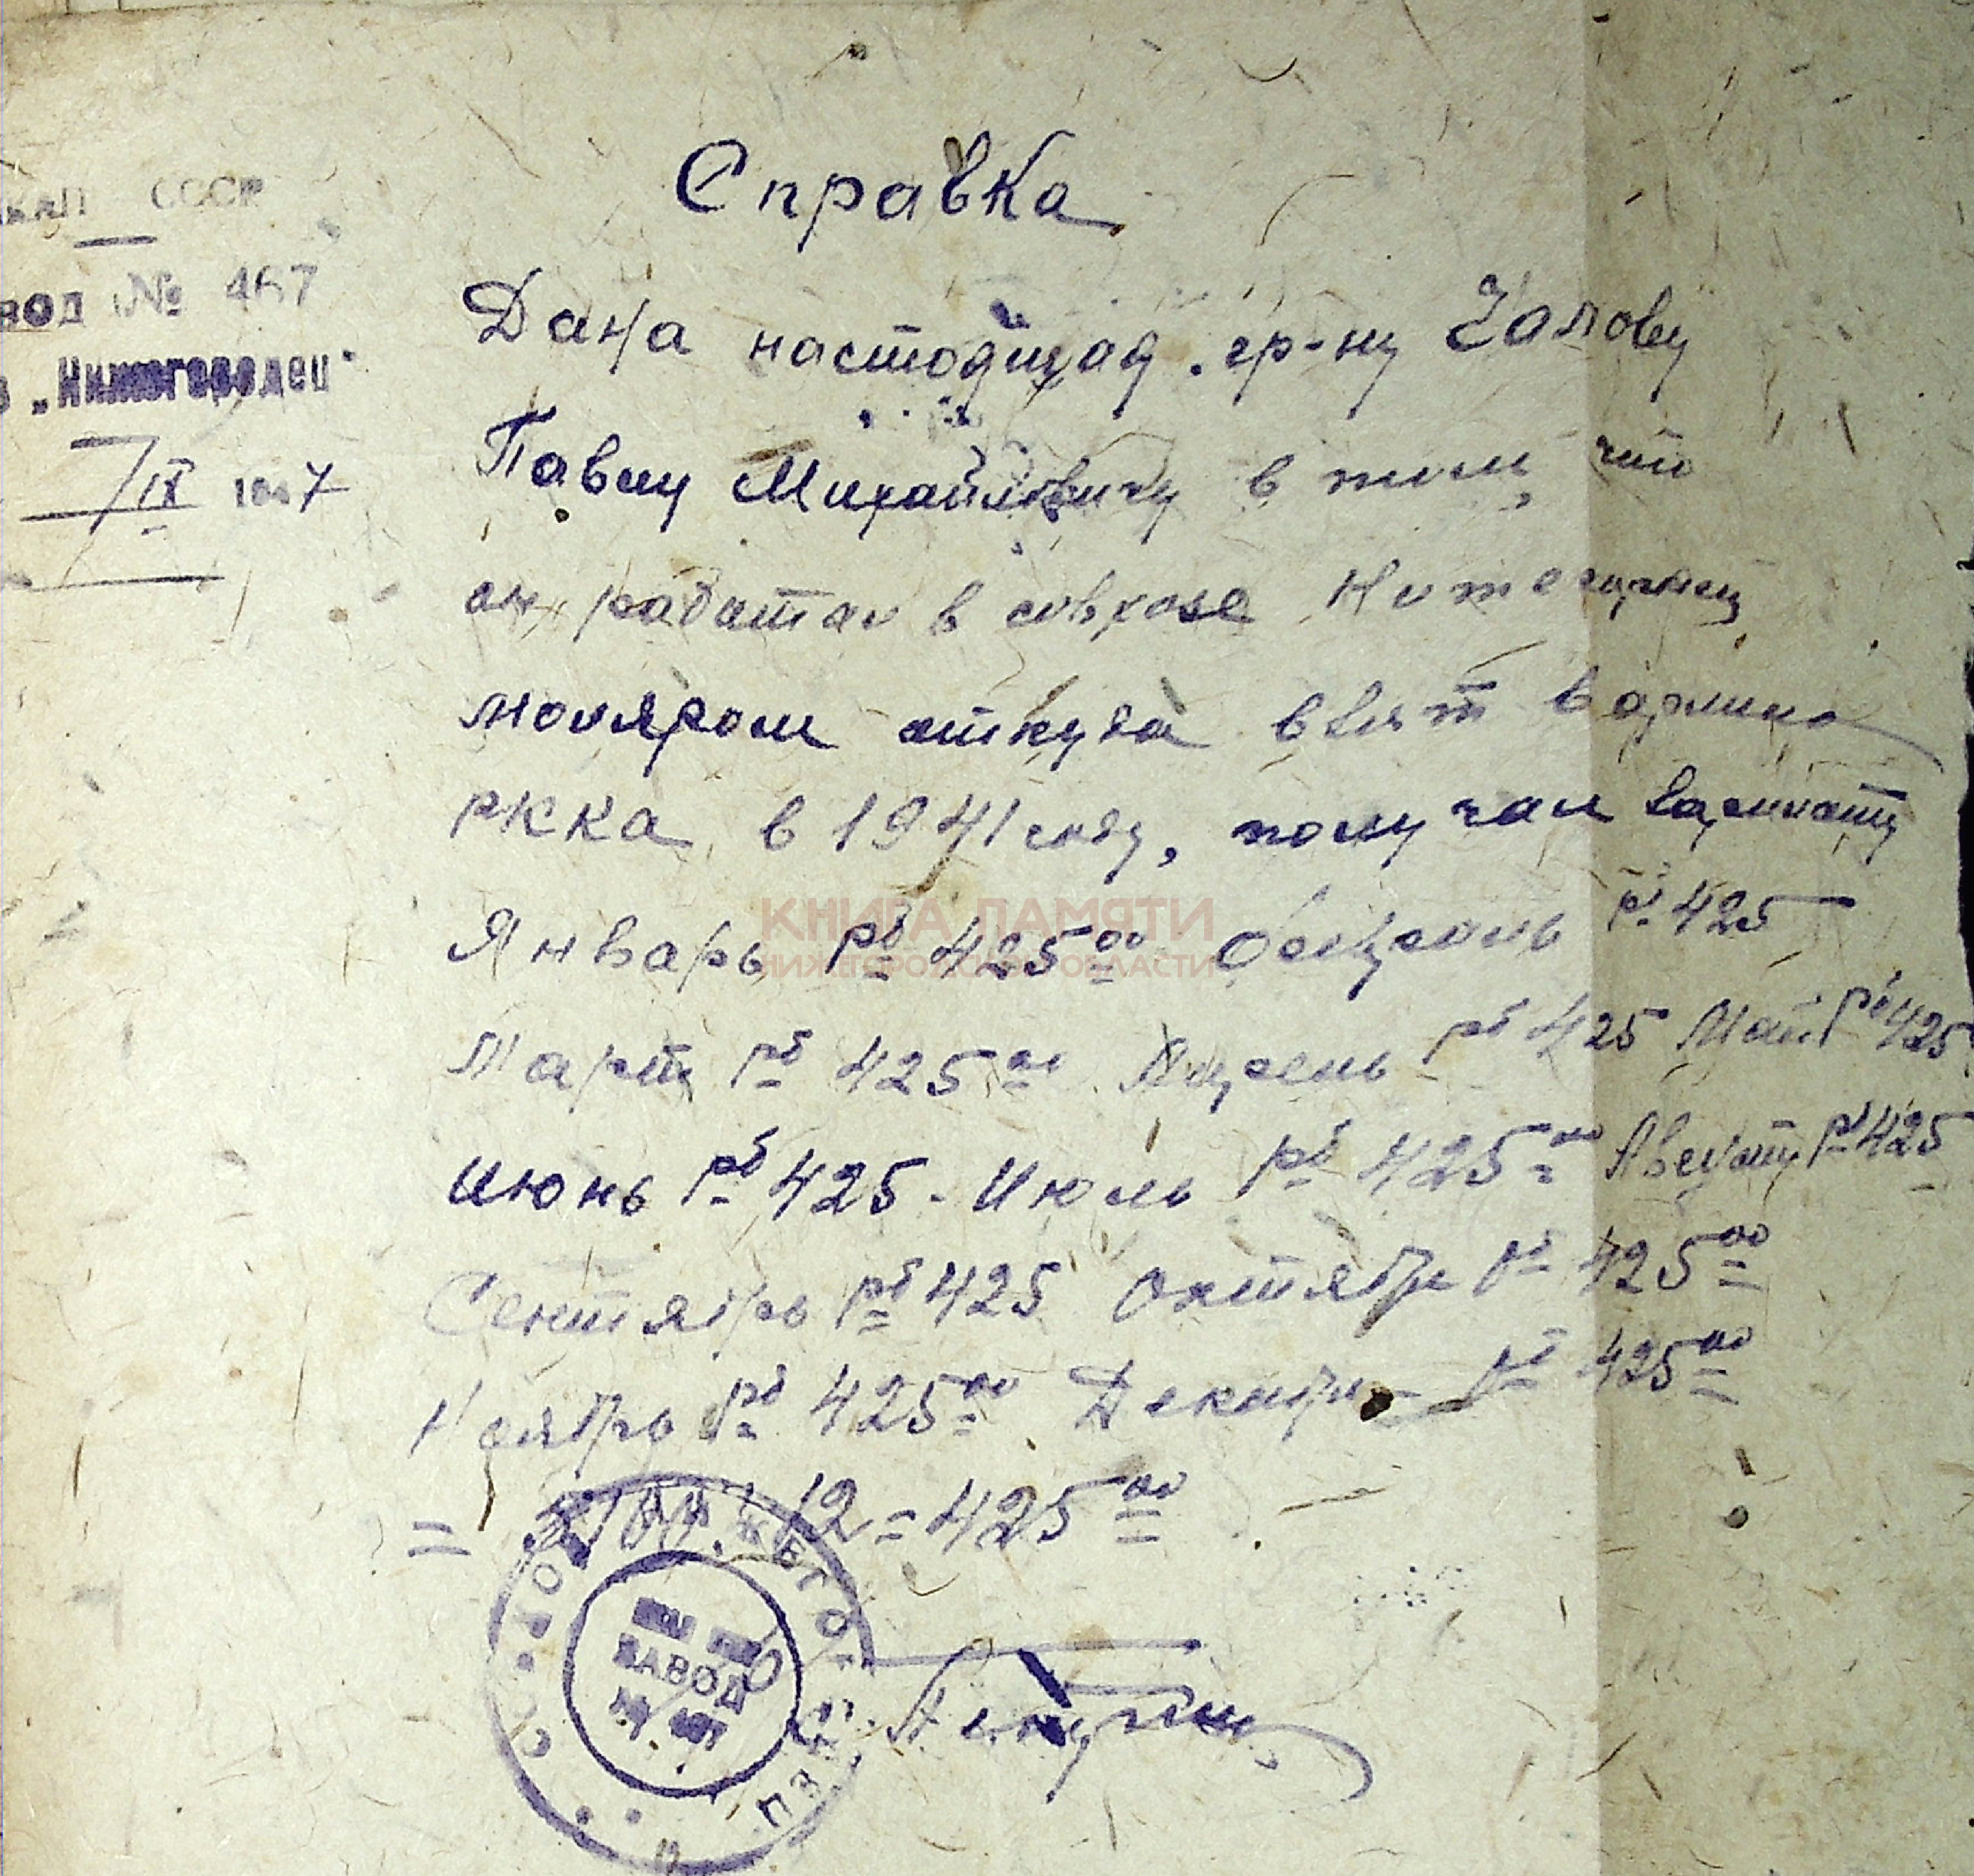 СССР
№ 467
„Нижегородец"
7/IX 1947
Справка
Дана настоящая гр-ну Чалову
Павлу Михайловичу в том, что
он работал в совхозе Нижегородец
моляром откуда взят в армию
РККА в 1941 году, получал зарплату
КНИГА ПАМЯТИ
НИЖЕГОРОДСКОЙ ОБЛАСТИ
Январь рб 425 00 Февраль рб 425
Март рб 425 00 Апрель рб 425 Май рб 425
Июнь рб 425 - Июль рб 425 00 Август рб 425
Сентябрь рб 425 Октябрь рб 425 00
Ноябрь рб 425 00 Декабрь рб 425 00
= 5100 : 12 = 425 00
ЗАВОД
№ 467